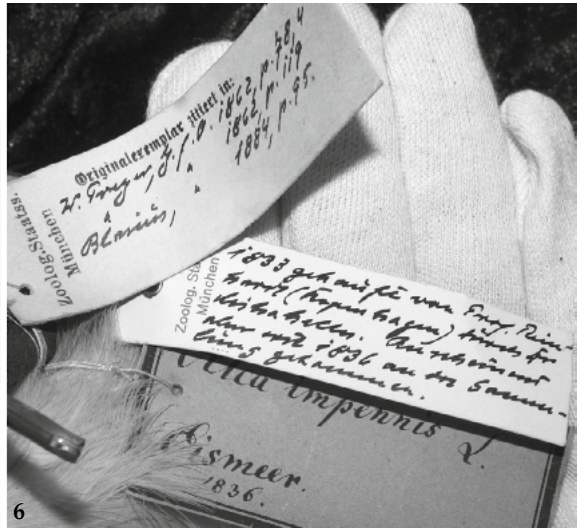 Zoolog. Staatss.
München
Originalexemplar zitiert in:
W. Preyer, J. f. O. 1862, p. 78,4
" " 1862, p. 119
Blasius, 1884, p. 95.
Zoolog. Sta
München
1833 gekauft von Prof. Rein-
hardt (Kopenhagen) durch
Michahelles. Anscheinend
aber erst 1836 an die Samm-
lung gekommen.
Alca impennis L.
Eismeer.
1836.
6